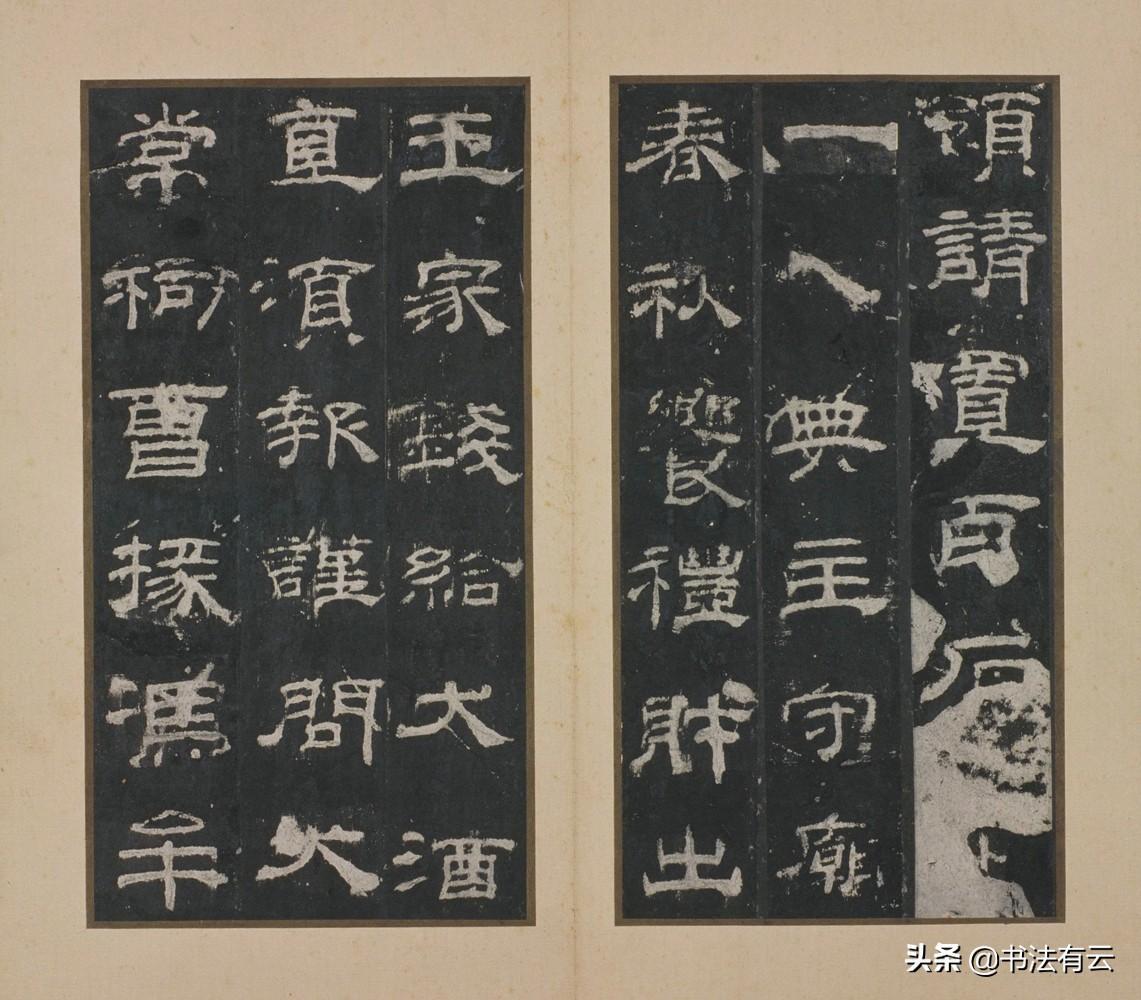 領請置百石
一人典主守廟
春秋饗禮財出
王家錢給犬酒
直須報謹問大
常祠曹掾馮牟
头条 @书法有云